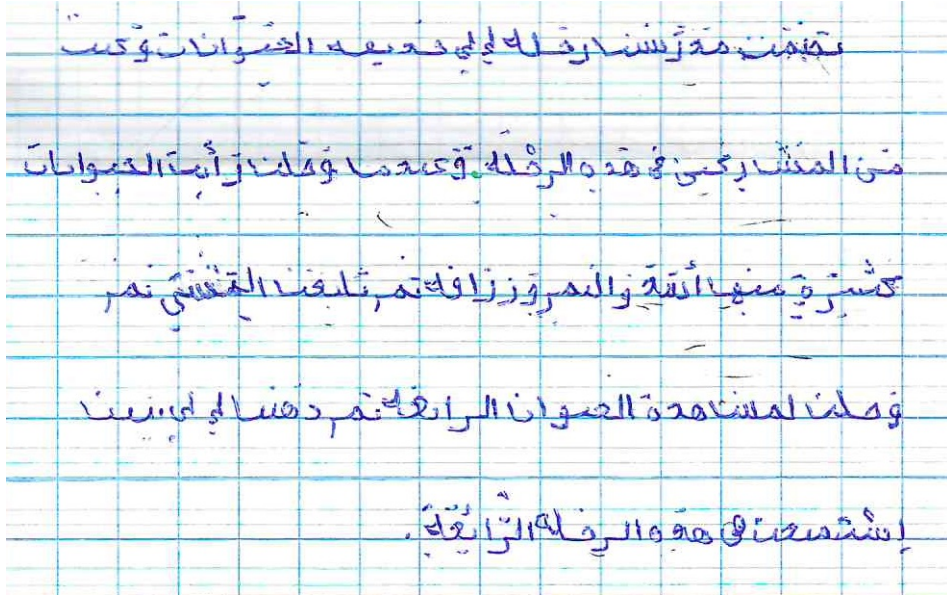 نضمت مدرستنا رحله إلى حديقه الحيوانات وكنت
من المشاركين في هده الرحلة. وعندما وصلنا رأيت الحيوانات
كثيرة منها أسد والنمر وزرافة تم تابعنا المشي نمر
وصلنا لمشاهدة الحيوان الرائعة تم دهبنا إلى بيتنا
إستمتعت في هده الرحلة الرائعة.